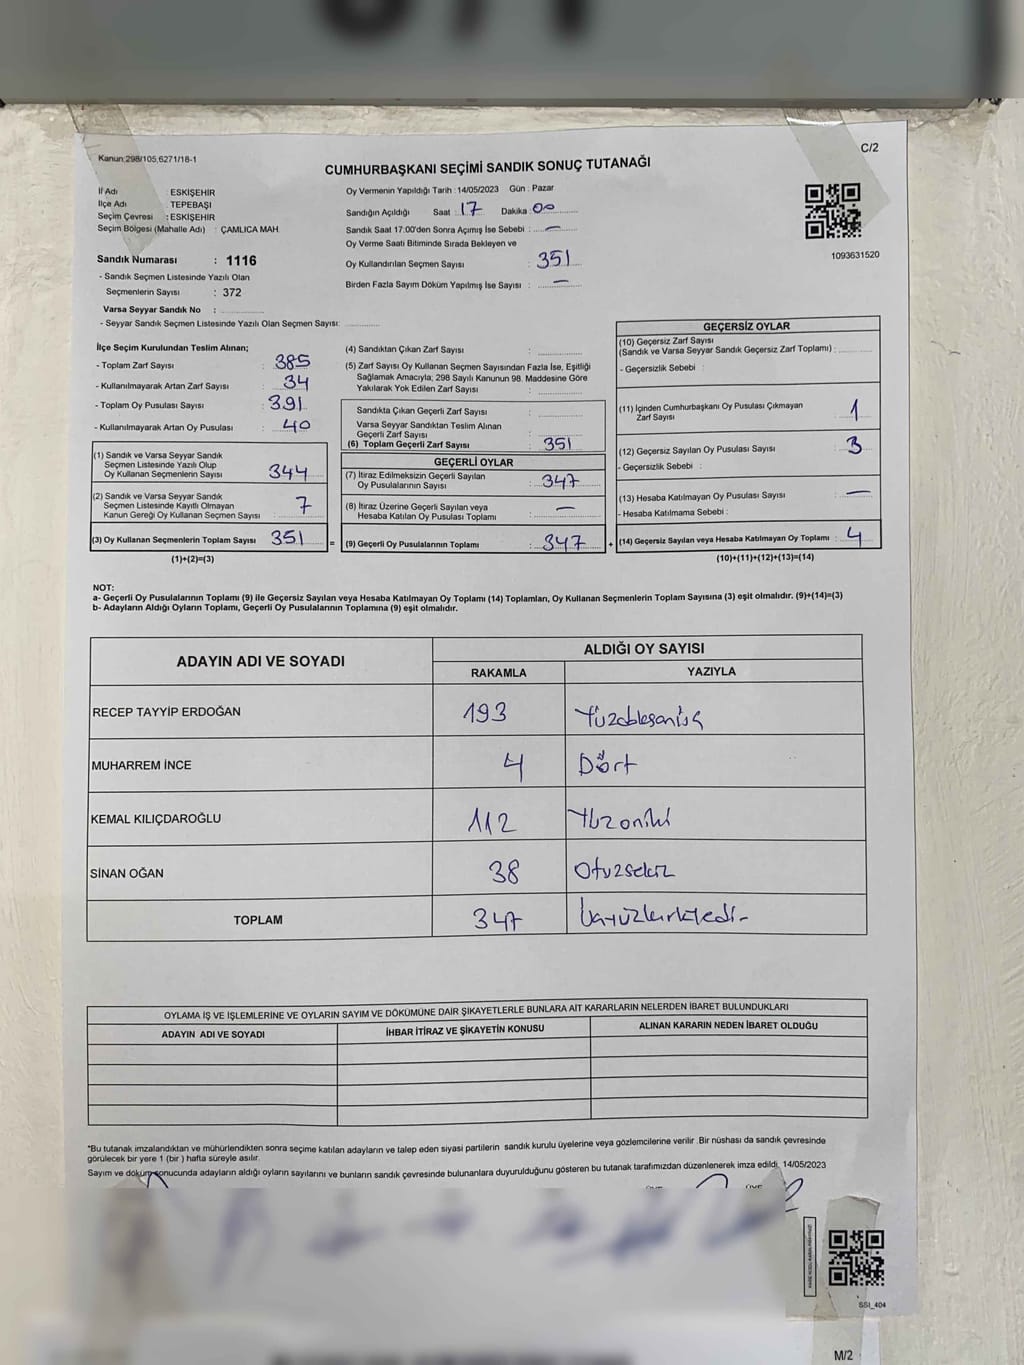 C/2
Kanun:298/105,6271/18-1
CUMHURBAŞKANI SEÇİMİ SANDIK SONUÇ TUTANAĞI
İl Adı ESKİŞEHİR
İlçe Adı : TEPEBAŞI
Seçim Çevresi : ESKİŞEHİR
Seçim Bölgesi (Mahalle Adı) : ÇAMLICA MAH.
Sandık Numarası : 1116
- Sandık Seçmen Listesinde Yazılı Olan
Seçmenlerin Sayısı : 372
Varsa Seyyar Sandık No :
- Seyyar Sandık Seçmen Listesinde Yazılı Olan Seçmen Sayısı:
Oy Vermenin Yapıldığı Tarih : 14/05/2023 Gün : Pazar
Sandığın Açıldığı Saat : 17 Dakika : 00
Sandık Saat 17:00'den Sonra Açımış İse Sebebi : —
Oy Verme Saati Bitiminde Sırada Bekleyen ve
Oy Kullandırılan Seçmen Sayısı : 351
Birden Fazla Sayım Döküm Yapılmış İse Sayısı : —
1093631520
İlçe Seçim Kurulundan Teslim Alınan;
- Toplam Zarf Sayısı : 385
- Kullanılmayarak Artan Zarf Sayısı : 34
- Toplam Oy Pusulası Sayısı : 391
- Kullanılmayarak Artan Oy Pusulası : 40
(1) Sandık ve Varsa Seyyar Sandık
Seçmen Listesinde Yazılı Olup
Oy Kullanan Seçmenlerin Sayısı : 344
(2) Sandık ve Varsa Seyyar Sandık
Seçmen Listesinde Kayıtlı Olmayan
Kanun Gereği Oy Kullanan Seçmen Sayısı : 7
(3) Oy Kullanan Seçmenlerin Toplam Sayısı : 351
(1)+(2)=(3)
(4) Sandıktan Çıkan Zarf Sayısı :
(5) Zarf Sayısı Oy Kullanan Seçmen Sayısından Fazla İse, Eşitliği
Sağlamak Amacıyla; 298 Sayılı Kanunun 98. Maddesine Göre
Yakılarak Yok Edilen Zarf Sayısı :
Sandıkta Çıkan Geçerli Zarf Sayısı :
Varsa Seyyar Sandıktan Teslim Alınan
Geçerli Zarf Sayısı :
(6) Toplam Geçerli Zarf Sayısı : 351
GEÇERLİ OYLAR
(7) İtiraz Edilmeksizin Geçerli Sayılan
Oy Pusulalarının Sayısı : 347
(8) İtiraz Üzerine Geçerli Sayılan veya
Hesaba Katılan Oy Pusulası Toplamı : —
= (9) Geçerli Oy Pusulalarının Toplamı : 347
GEÇERSİZ OYLAR
(10) Geçersiz Zarf Sayısı
(Sandık ve Varsa Seyyar Sandık Geçersiz Zarf Toplamı) :
- Geçersizlik Sebebi :
(11) İçinden Cumhurbaşkanı Oy Pusulası Çıkmayan
Zarf Sayısı : 1
(12) Geçersiz Sayılan Oy Pusulası Sayısı : 3
- Geçersizlik Sebebi :
(13) Hesaba Katılmayan Oy Pusulası Sayısı : —
- Hesaba Katılmama Sebebi :
+ (14) Geçersiz Sayılan veya Hesaba Katılmayan Oy Toplamı : 4
(10)+(11)+(12)+(13)=(14)
NOT:
a- Geçerli Oy Pusulalarının Toplamı (9) ile Geçersiz Sayılan veya Hesaba Katılmayan Oy Toplamı (14) Toplamları, Oy Kullanan Seçmenlerin Toplam Sayısına (3) eşit olmalıdır. (9)+(14)=(3)
b- Adayların Aldığı Oyların Toplamı, Geçerli Oy Pusulalarının Toplamına (9) eşit olmalıdır.
ADAYIN ADI VE SOYADI ALDIĞI OY SAYISI
RAKAMLA YAZIYLA
RECEP TAYYİP ERDOĞAN 193
MUHARREM İNCE 4 Dört
KEMAL KILIÇDAROĞLU 112 Yüzoniki
SİNAN OĞAN 38 Otuzsekiz
TOPLAM 347
OYLAMA İŞ VE İŞLEMLERİNE VE OYLARIN SAYIM VE DÖKÜMÜNE DAİR ŞİKAYETLERLE BUNLARA AİT KARARLARIN NELERDEN İBARET BULUNDUKLARI
ADAYIN ADI VE SOYADI İHBAR İTİRAZ VE ŞİKAYETİN KONUSU ALINAN KARARIN NEDEN İBARET OLDUĞU
*Bu tutanak imzalandıktan ve mühürlendikten sonra seçime katılan adayların ve talep eden siyasi partilerin sandık kurulu üyelerine veya gözlemcilerine verilir .Bir nüshası da sandık çevresinde
görülecek bir yere 1 (bir ) hafta süreyle asılır.
Sayım ve döküm sonucunda adayların aldığı oyların sayılarını ve bunların sandık çevresinde bulunanlara duyurulduğunu gösteren bu tutanak tarafımızdan düzenlenerek imza edildi. 14/05/2023
SSI_404
M/2